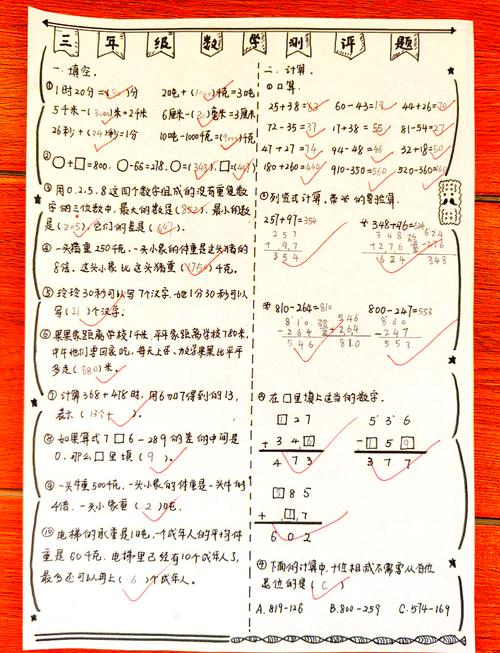 三年级数学测评题
一.填空.
①1时20分=(80)分 20吨+()千克=30吨
5千米-()米=24米 6厘米-()毫米=3厘米
26秒+(34)秒=1分 10吨-1000千克=(9000)千克
②○+□=800. ○-66=278. ○=(). □=()
③用0.2.5.8这四个数字组成的没有重复数
字的三位数中,最大的数是(852).最小的数
是(205).它们的差是(647).
④一头猪重250千克.一头小象的体重是这头猪的
8倍.这头小象比这头猪重(1750)千克.
⑤玲玲30秒可以写7个汉字.她1分30秒可以
写(21)个汉字.
⑥果果家距离学校1千米.平平家距离学校780米.
中午他们要回家吃.每天上学.放学果果比平平
多走(880)米.
⑦计算368+478时.用6加7得到的13.
表示(13个十).
⑧如果算式7□6-289的差的中间是
0.那么□里填(9).
⑨一头牛重500千克.一头小象的体重是一头牛的
4倍.一头小象重(2)吨.
⑩电梯的承重是1吨.一个成年人的平均体
重是60千克.电梯里已经有10个成年人了.
最多还可以再上(6)个成年人.
二.计算.
①口算.
25+38=63 60-43= 44+26=70
72-35=37 17+38=55 81-54=27
47+27=74 94-48=46 32+18=50
180+260=440 910-350=560 520-360=160
②列竖式计算,带※的要验算.
257+97=354 ※348+276=624
257
+97
354
348
+276
624
624
-276
348
※810-264=810 800-247=553
810
-264
546
546
+264
810
800
-247
553
③在□里填上适当的数字.
127
+346
473
536
-159
377
585
+17
602
④下面的计算中.十位相减不需要从百位
退位的是(C)
A.819-126 B.800-259 C.574-169